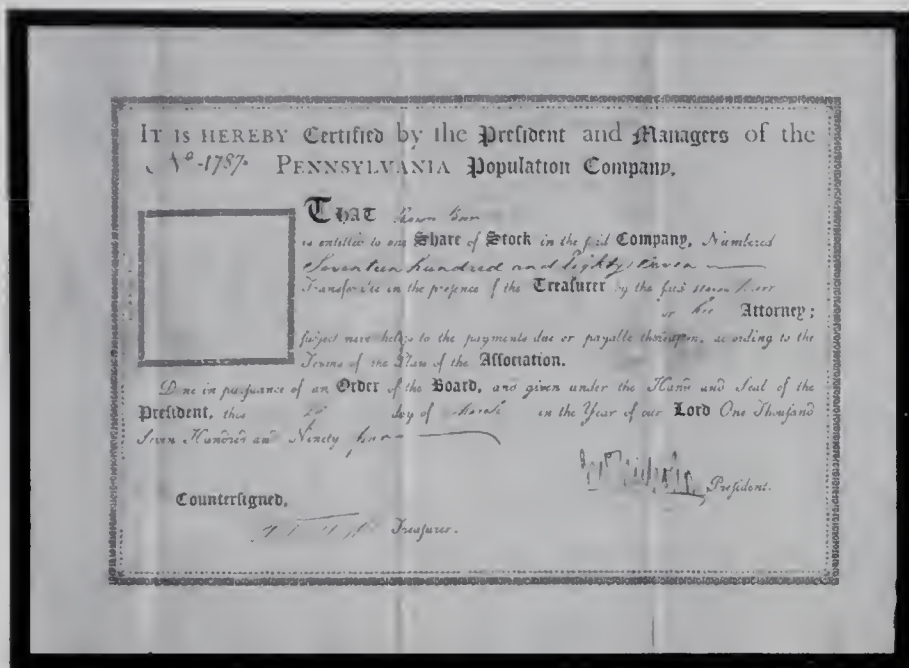 IT IS HEREBY Certified by the President and Managers of the
No. 1787. PENNSYLVANIA Population Company,
THAT
is entitled to one Share of Stock in the said Company, Numbered
Seventeen hundred and Eighty Seven
Transferable in the presence of the Treasurer by the said
or her Attorney;
subject nevertheless to the payments due or payable thereupon, according to the
Terms of the Plan of the Association.
Done in pursuance of an Order of the Board, and given under the Hand and Seal of the
President, this day of March in the Year of our Lord One Thousand
Seven Hundred and Ninety
President.
Countersigned,
Treasurer.